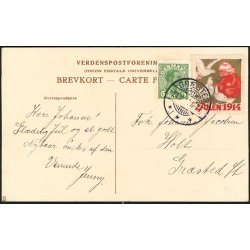 VERDENSPOSTFORENING
(UNION POSTALE UNIVERSELLE)
BREVKORT - CARTE
JULEN 1914
Korrespondance
Kære Johanne!
Glædelig Jul og et godt
Nytaar ønskes af den
Veninde
Jenny.
Frk Johanne Jacobsen
Holt
Græsted St